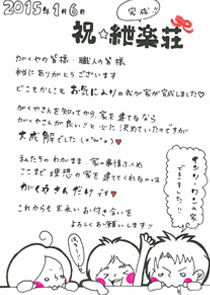 2015年1月6日
完成!!
祝☆紲楽荘
がくやの皆様・職人の皆様
本当にありがとうございます
どこもかしこもお気に入りの我が家が完成しました♡
がくやさんを知ってから、家を建てるなら
がくやさんが良い!!と心に決めていたのですが
大成解でした(o^ω^o)♡
私たちのわがまま、家の事情ふくめ
ここまで理想の家を建ててくれるのは
がくやさんだけです♡
これからも末永いお付き合いを
よろしくお願いします!!
オンリーワンの家
できました!!